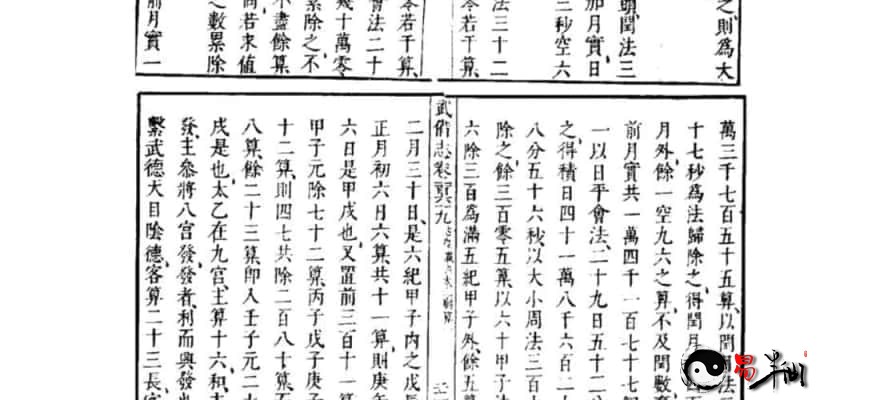 之則為大
頭閏法三
加月實日
三秒空六
法三十二
零若干算
零若干算
會法二十
幾十萬零
累除之不
不盡餘算
而若來值
之數累除
前月實一
萬三千七百五十五算以閏
十七秒爲法歸除之得閏月
月外餘一空九六之算不及閏數
前月實共一萬四千一百七十七
一以日平會法二十九日五十二
之得積日四十一萬八千六百二
八分五十六秒以大小周法三百
除之餘三百零五算以六十甲子
六除三百爲滿五紀甲子外餘五
武備志卷
二月三十日是六紀甲子內之戊
正月初六日六算共十一算則庚
六日是甲戌也又置前三百十一
甲子元除七十二算丙子戊子庚
十二算則四七共除二百八十算
八算餘二十三算卽入壬子元二
戌是也太乙在九宮主算十六和
發主參將八宮發發者利而興發
繫武德天目陰德客算二十三長
易半仙